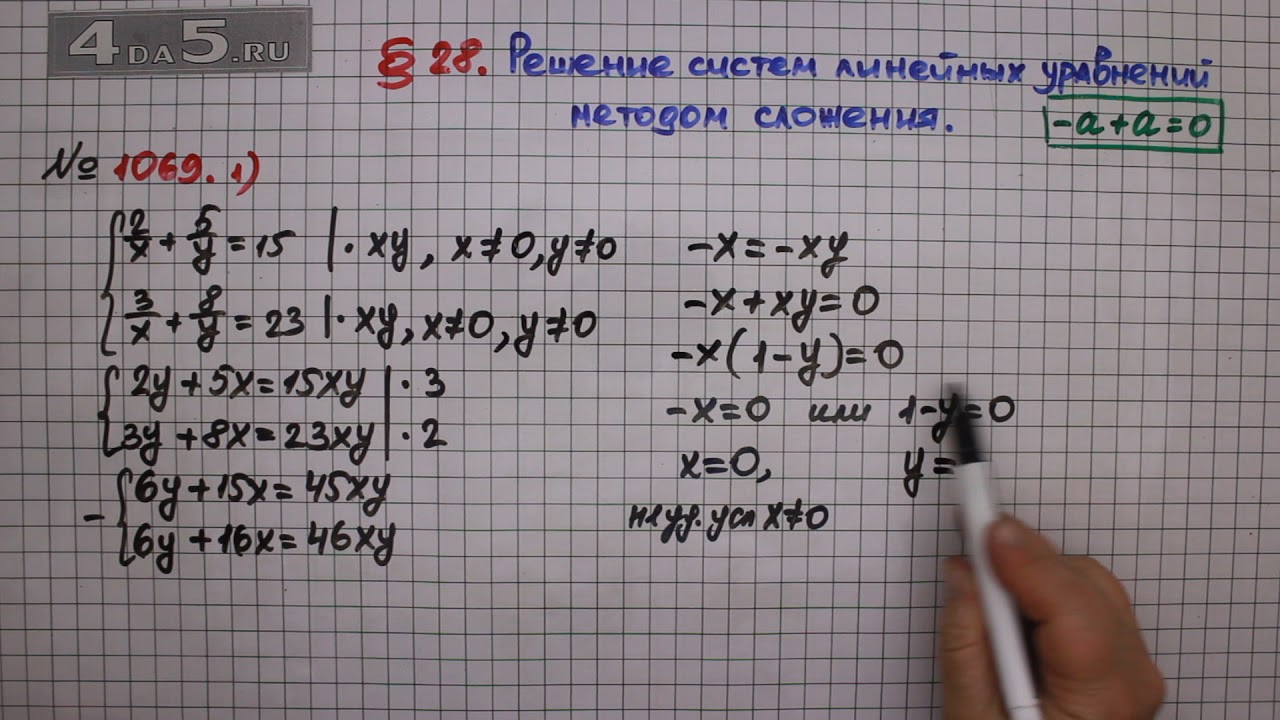 4DA5.RU
§ 28. Решение систем линейных уравнений
методом сложения. -a+a=0
№ 1069. 1)
{2/x + 5/y = 15 |· xy, x≠0, y≠0
{3/x + 8/y = 23 |· xy, x≠0, y≠0
{2y + 5x = 15xy |· 3
{3y + 8x = 23xy |· 2
- {6y + 15x = 45xy
{6y + 16x = 46xy
-x = -xy
-x + xy = 0
-x(1-y) = 0
-x=0 или 1-y=0
x=0, y=
не уд. усл x≠0